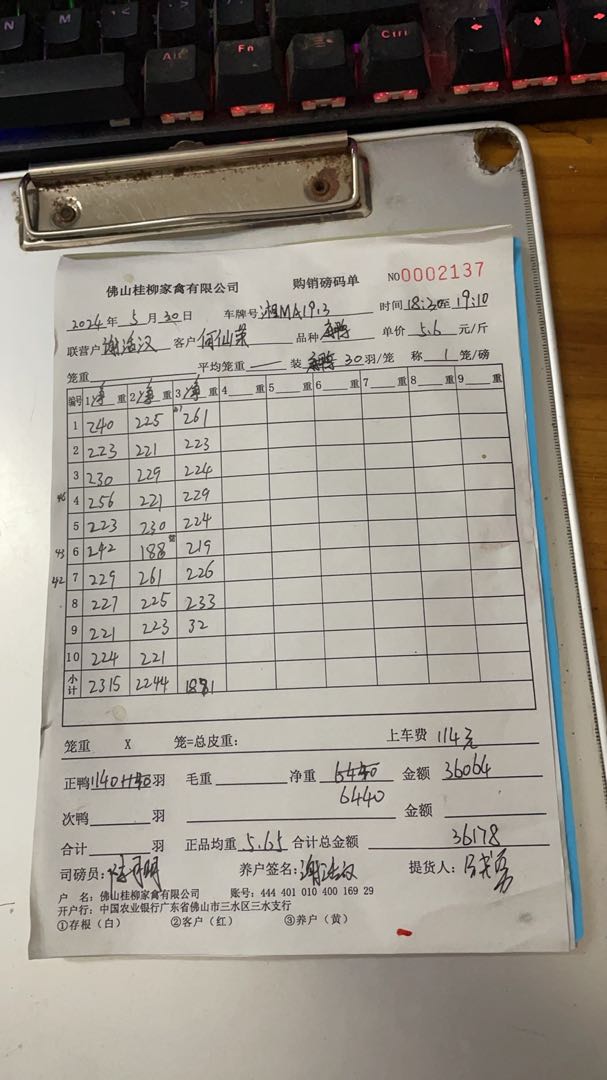 N M
Alt Fn Ctrl
佛山桂柳家禽有限公司 购销磅码单 NO0002137
2024年5月30日 车牌号 湘MA1913 时间18:30至19:10
联营户 谢浩汉 客户 何仙荣 品种 单价 5.6 元/斤
笼重 平均笼重 装 30羽/笼 称 1 笼/磅
编号 1净重 2净重 3净重 4重 5重 6重 7重 8重 9重
1 240 225 261
2 223 221 223
3 230 229 224
46 4 256 221 229
5 223 230 224
43 6 242 188 219
42 7 229 261 226
8 227 225 233
9 221 223 32
10 224 221
小计 2315 2244 1881
笼重 X 笼=总皮重: 上车费 114元
正鸭 1140 羽 毛重 净重 6440 金额 36064
6440
次鸭 羽 金额
合计 羽 正品均重 5.65 合计总金额 36178
司磅员: 养户签名: 谢浩汉 提货人:
户 名: 佛山桂柳家禽有限公司 账号: 444 401 010 400 169 29
开户行: 中国农业银行广东省佛山市三水区三水支行
①存根(白) ②客户(红) ③养户(黄)